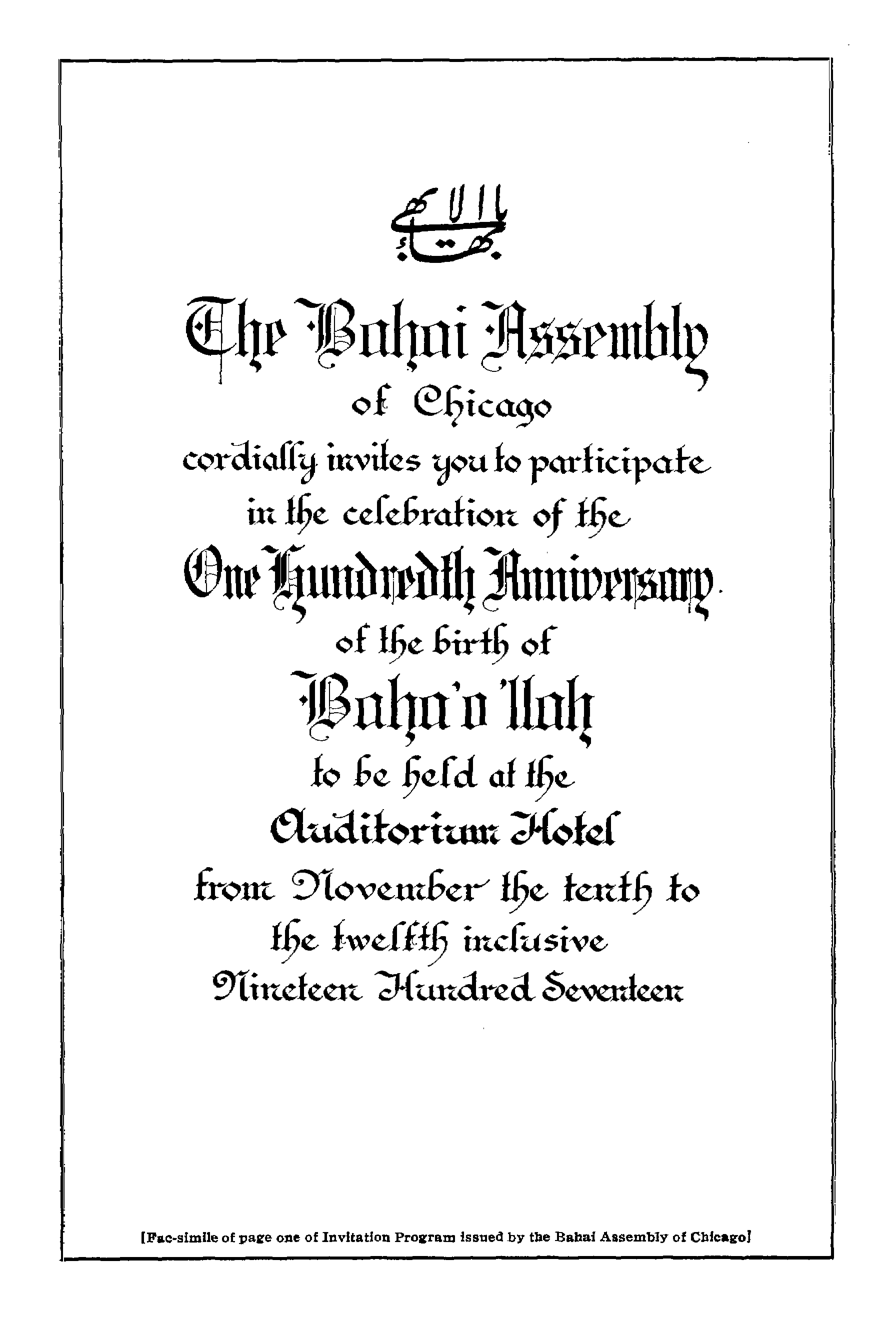 يا بهاء الابهى
The Bahai Assembly
of Chicago
cordially invites you to participate
in the celebration of the
One Hundredth Anniversary
of the birth of
Baha'o'llah
to be held at the
Auditorium Hotel
from November the tenth to
the twelfth inclusive
Nineteen Hundred Seventeen
[Fac-simile of page one of Invitation Program issued by the Bahai Assembly of Chicago]